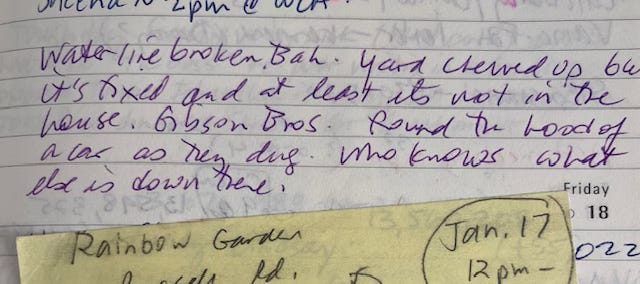 2pm @ WCH
Waterline broken. Bah. Yard chewed up bu
it's fixed and at least its not in the
house. Gibson Bros. found the hood of
a car as they dug. Who knows what
else is down there.
Friday
18
022
Rainbow Garden
Rd.
Jan. 17
12pm-